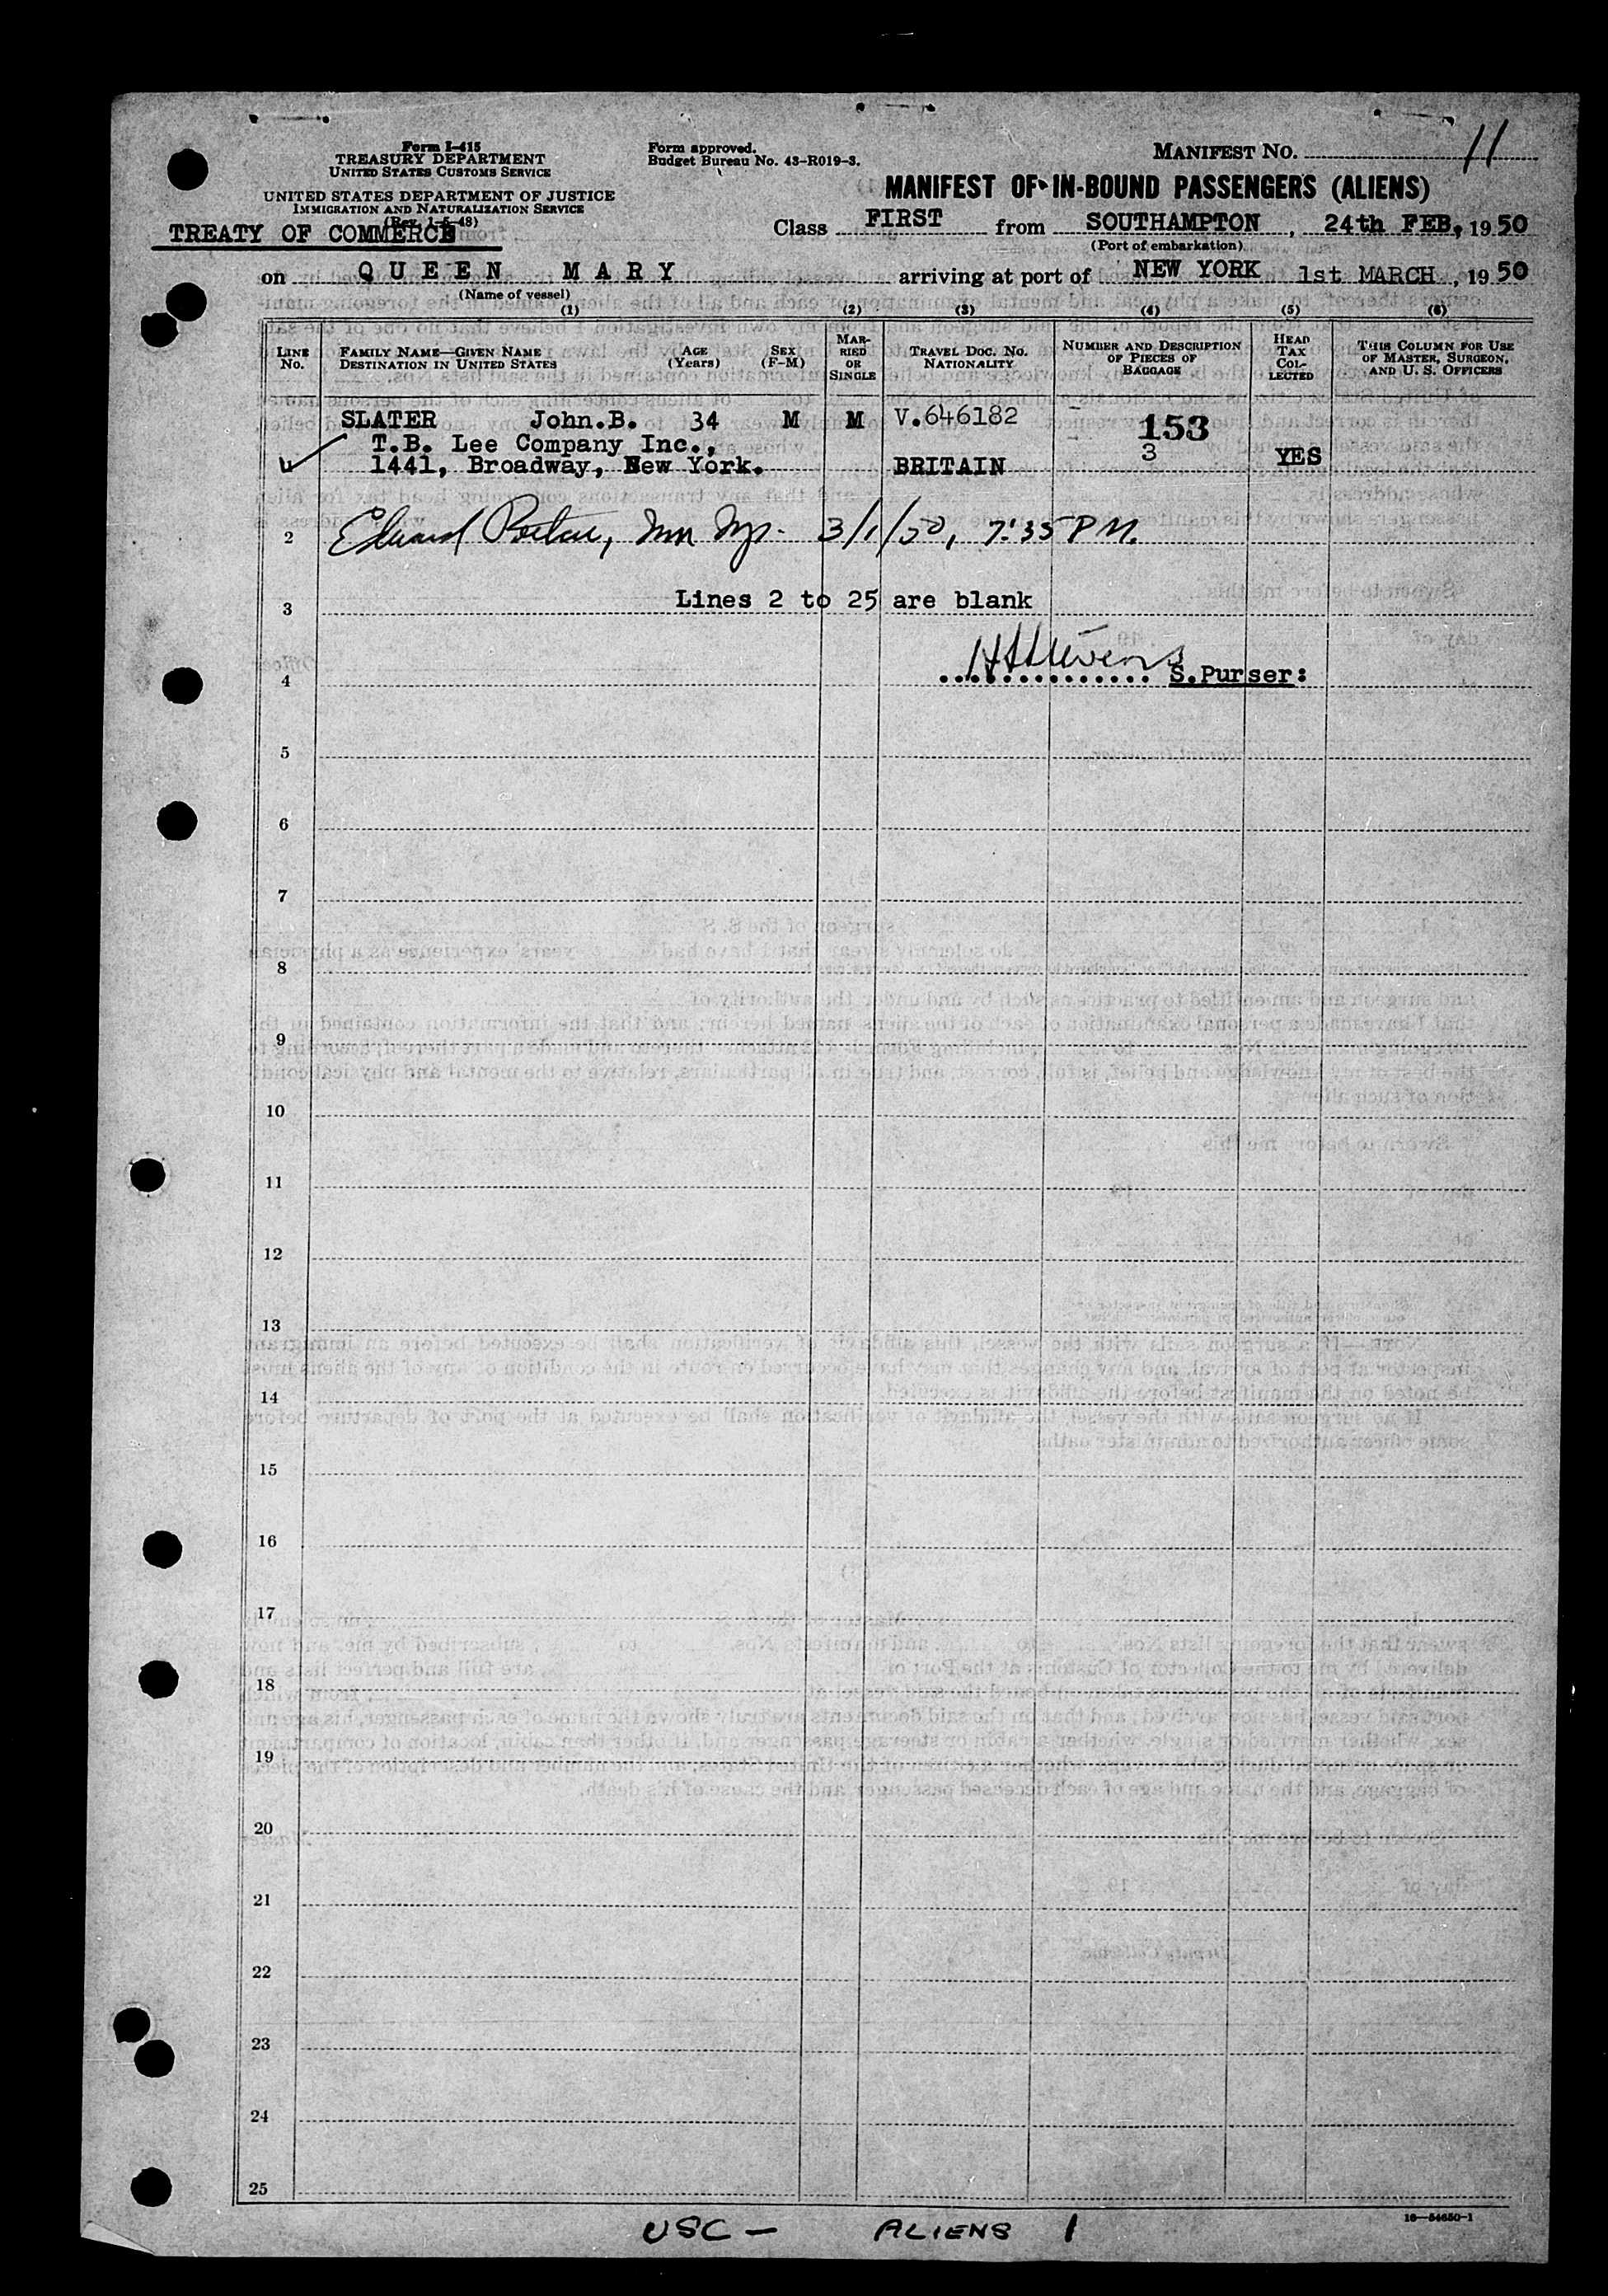 Form I-415
TREASURY DEPARTMENT
UNITED STATES CUSTOMS SERVICE
UNITED STATES DEPARTMENT OF JUSTICE
IMMIGRATION AND NATURALIZATION SERVICE
(Rev. 1-5-48)
TREATY OF COMMERCE
Form approved.
Budget Bureau No. 43-R019-3.
MANIFEST NO. 11
MANIFEST OF IN-BOUND PASSENGERS (ALIENS)
Class FIRST from SOUTHAMPTON, 24th FEB, 1950
(Port of embarkation)
on QUEEN MARY arriving at port of NEW YORK 1st MARCH, 1950
(Name of vessel)
(1) (2) (3) (4) (5) (6)
LINE NO.
FAMILY NAME—GIVEN NAME
DESTINATION IN UNITED STATES
AGE (Years)
SEX (F-M)
MARRIED OR SINGLE
TRAVEL DOC. NO.
NATIONALITY
NUMBER AND DESCRIPTION OF PIECES OF BAGGAGE
HEAD TAX COLLECTED
THIS COLUMN FOR USE OF MASTER, SURGEON, AND U. S. OFFICERS
SLATER John.B. 34 M M V.646182 153
T.B. Lee Company Inc.,
1441, Broadway, New York. BRITAIN 3 YES
2 Edward 3/1/50, 7:35 PM.
3 Lines 2 to 25 are blank
HStevens
4 S.Purser:
5
6
7
8
9
10
11
12
13
14
15
16
17
18
19
20
21
22
23
24
25
USC — ALIENS 1
16—54650-1